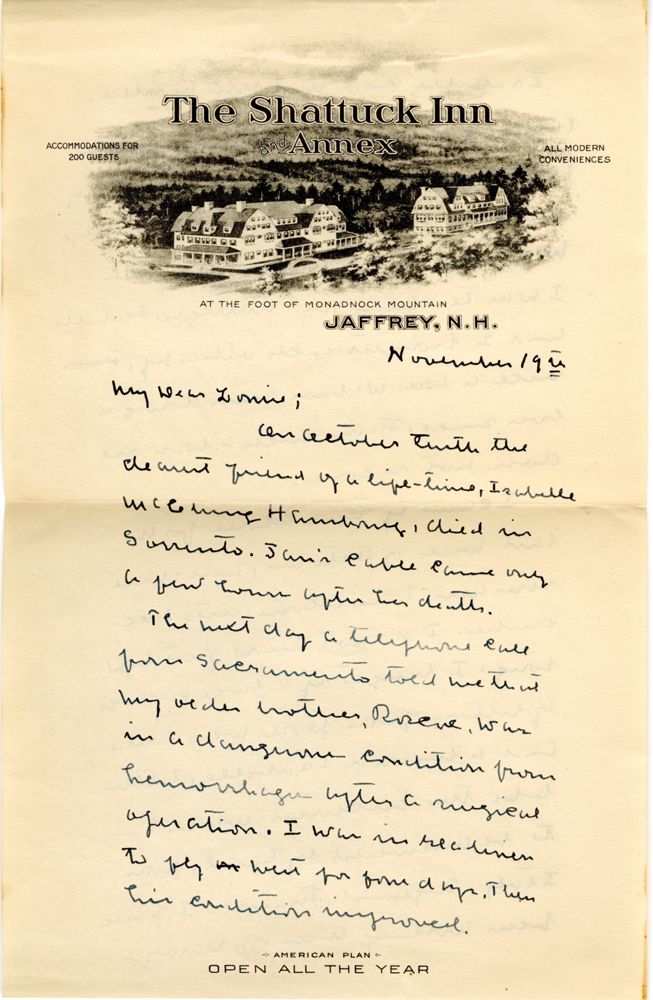 The Shattuck Inn
and Annex
ACCOMMODATIONS FOR
200 GUESTS
ALL MODERN
CONVENIENCES
AT THE FOOT OF MONADNOCK MOUNTAIN
JAFFREY, N.H.
November 19th
My Dear Lonnie;
On October Tenth the
dearest friend of a life-time, Isabelle
McClung Hambourg, died in
Sorrento. Jan's cable came only
a few hours after her death.
The next day a telephone call
from Sacramento told me that
my older brother, Roscoe, was
in a dangerous condition from
hemorrhage after a surgical
operation. I was in readiness
to fly west for four days. Then
his condition improved.
AMERICAN PLAN
OPEN ALL THE YEAR